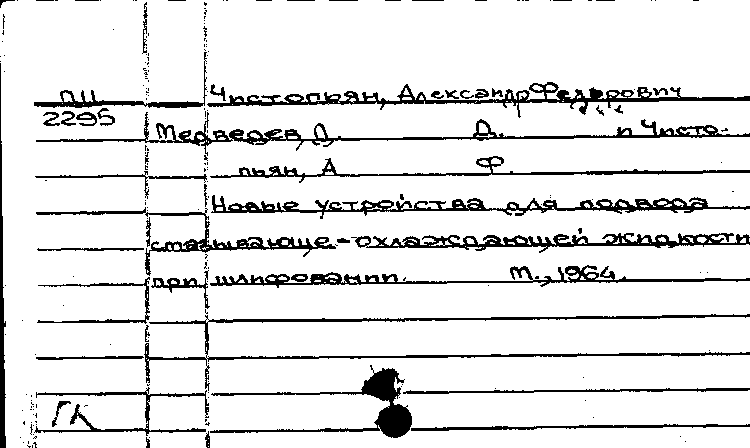 ПII Чистопьян, Александр Федорович
2295
Медведев, Д. Д. и Чисто-
пьян, А Ф.
Новые устройства для подвода
смазывающе-охлаждающей жидкости
при шлифовании. М., 1964.
ГК